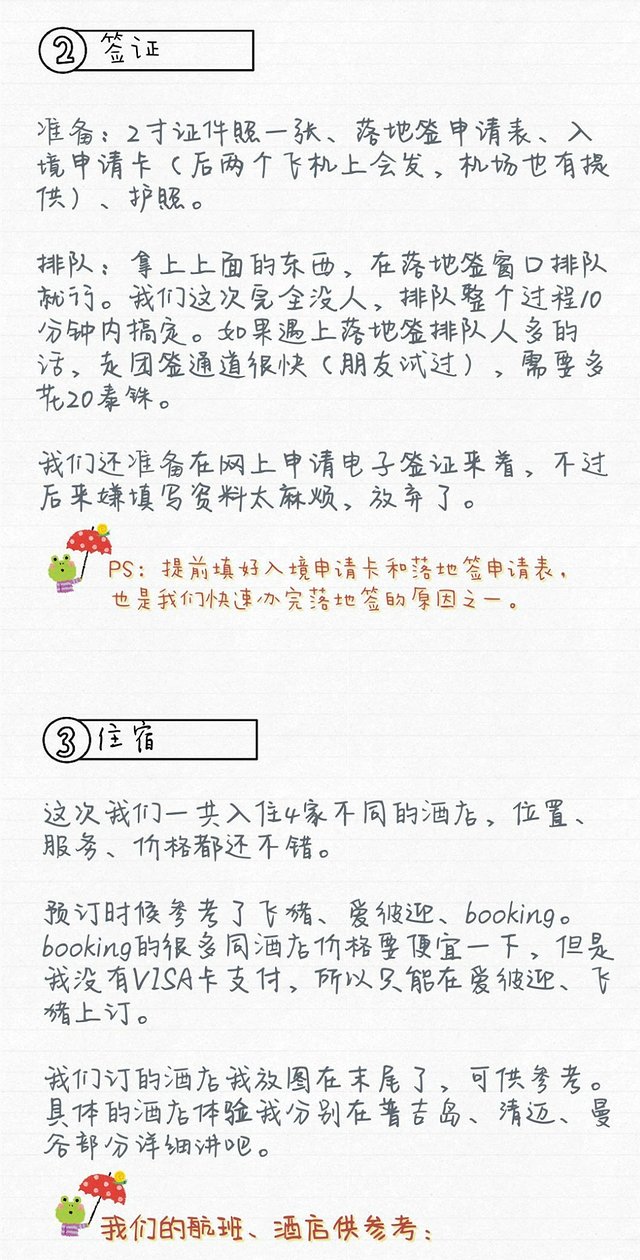 ② 签证
准备：2寸证件照一张、落地签申请表、入
境申请卡（后两个飞机上会发，机场也有提
供）、护照。
排队：拿上上面的东西，在落地签窗口排队
就行。我们这次完全没人，排队整个过程10
分钟内搞定。如果遇上落地签排队人多的
话，走团签通道很快（朋友试过），需要多
花20泰铢。
我们还准备在网上申请电子签证来着，不过
后来嫌填写资料太麻烦，放弃了。
PS：提前填好入境申请卡和落地签申请表，
也是我们快速办完落地签的原因之一。
③ 住宿
这次我们一共入住4家不同的酒店，位置、
服务、价格都还不错。
预订时候参考了飞猪、爱彼迎、booking。
booking的很多同酒店价格要便宜一下，但是
我没有VISA卡支付，所以只能在爱彼迎、飞
猪上订。
我们订的酒店我放图在末尾了，可供参考。
具体的酒店体验我分别在普吉岛、清迈、曼
谷部分详细讲吧。
我们的航班、酒店供参考：